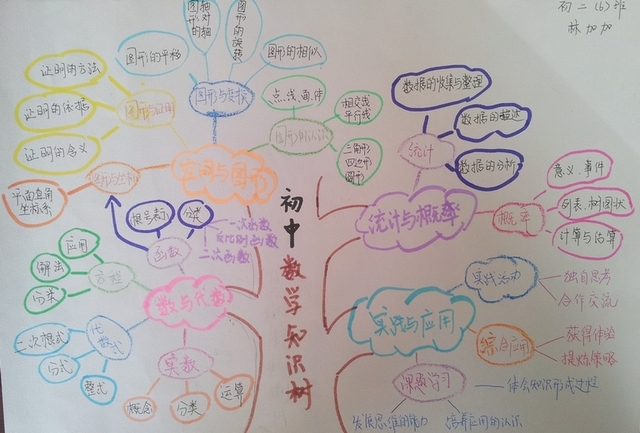 初二(6)班
林加加
初中数学知识树
空间与图形
图形与变换
图形的平移
图形的轴对称
图形的旋转
图形的相似
图形与证明
证明的方法
证明的依据
证明的含义
图形的认识
点、线、面、体
相交线
平行线
三角形
四边形
圆形
图形与坐标
平面直角
坐标系
数与代数
函数
分类
一次函数
反比例函数
二次函数
方程
应用
解法
分类
代数式
二次根式
分式
整式
实数
概念
分类
运算
统计与概率
统计
数据的收集与整理
数据的描述
数据的分析
概率
意义、事件
列表、树图状
计算与估算
实践与应用
实践活动
独自思考
合作交流
综合应用
获得体验
提炼策略
课题学习
体会知识形成过程
发展思维的能力
培养应用的认识